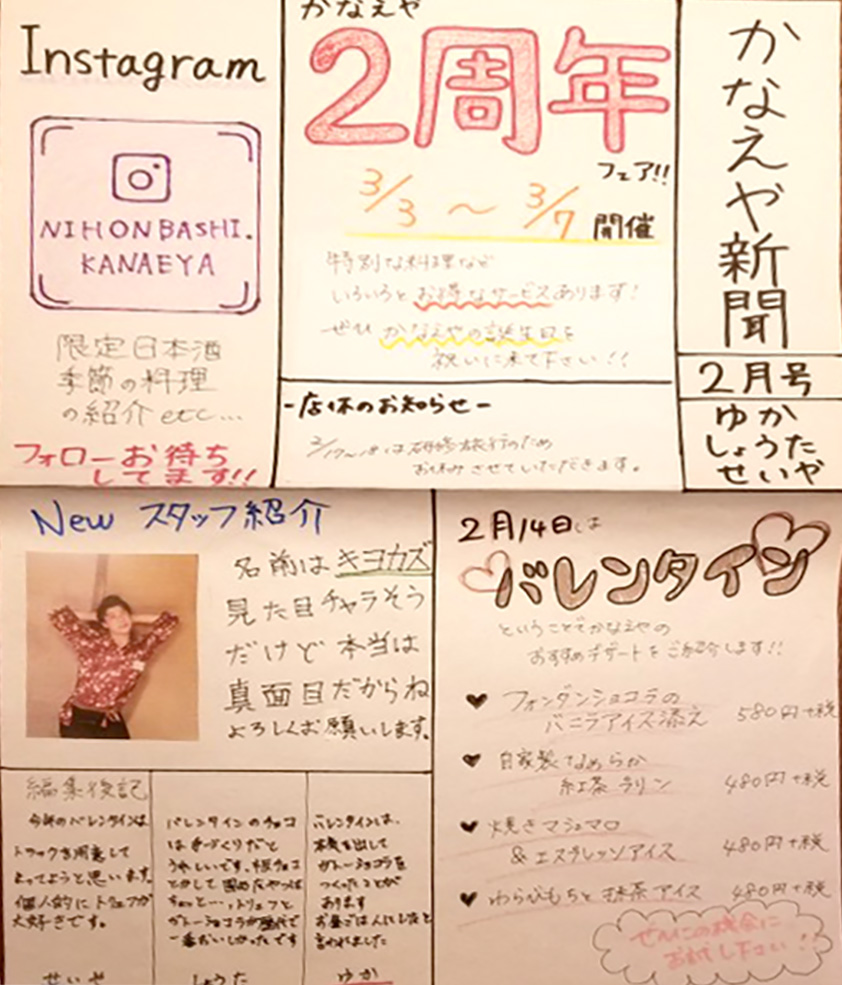 かなえや新聞
2月号
ゆか
しょうた
せいや
かなえや
2周年
フェア!!
3/3 ～ 3/7 開催
特別な料理など
いろいろとお得なサービスあります!
ぜひかなえやの誕生日を
祝いに来て下さい!!
-店休のお知らせ-
2/17~18は研修旅行のため
お休みさせていただきます。
Instagram
NIHONBASHI.
KANAEYA
限定日本酒
季節の料理
の紹介 etc...
フォローお待ち
してます!!
New スタッフ紹介
名前はキヨカズ
見た目チャラそう
だけど本当は
真面目だからね
よろしくお願いします。
2月14日は
バレンタイン
ということでかなえやの
おすすめデザートをご紹介します!!
♥ フォンダンショコラの
バニラアイス添え 580円+税
♥ 自家製なめらか
紅茶プリン 480円+税
♥ 焼きマシュマロ
&エスプレッソアイス 480円+税
♥ わらびもちと抹茶アイス 480円+税
ぜひこの機会に
お試し下さい!!
編集後記
今年のバレンタインは
トラックを用意して
まってようと思います。
個人的にトリュフが
大好きです。
せいや
バレンタインのチョコ
は手づくりだと
うれしいです。
とかして固めたやつは
ちょっと…、トリュフと
ガトーショコラが歴代で
一番おいしかったです
しょうた
バレンタインは、
本気を出して
ガトーショコラを
つくったことが
あります
お店では人にしたと
言われました
ゆか